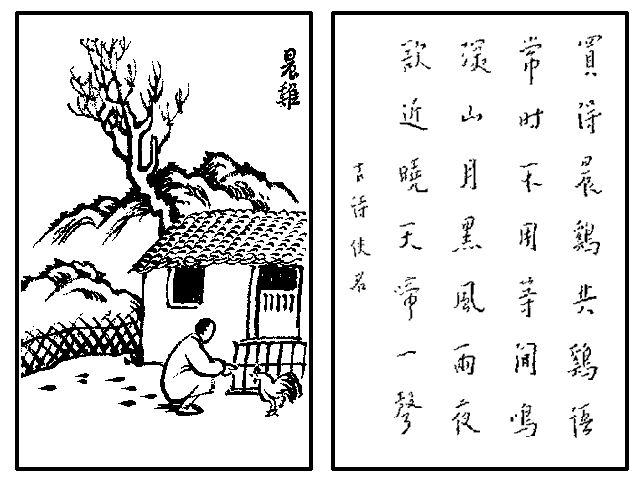 晨雞
買得晨鷄共鷄語
常时不用等間鳴
深山月黑風雨夜
欲近曉天啼一聲
古詩